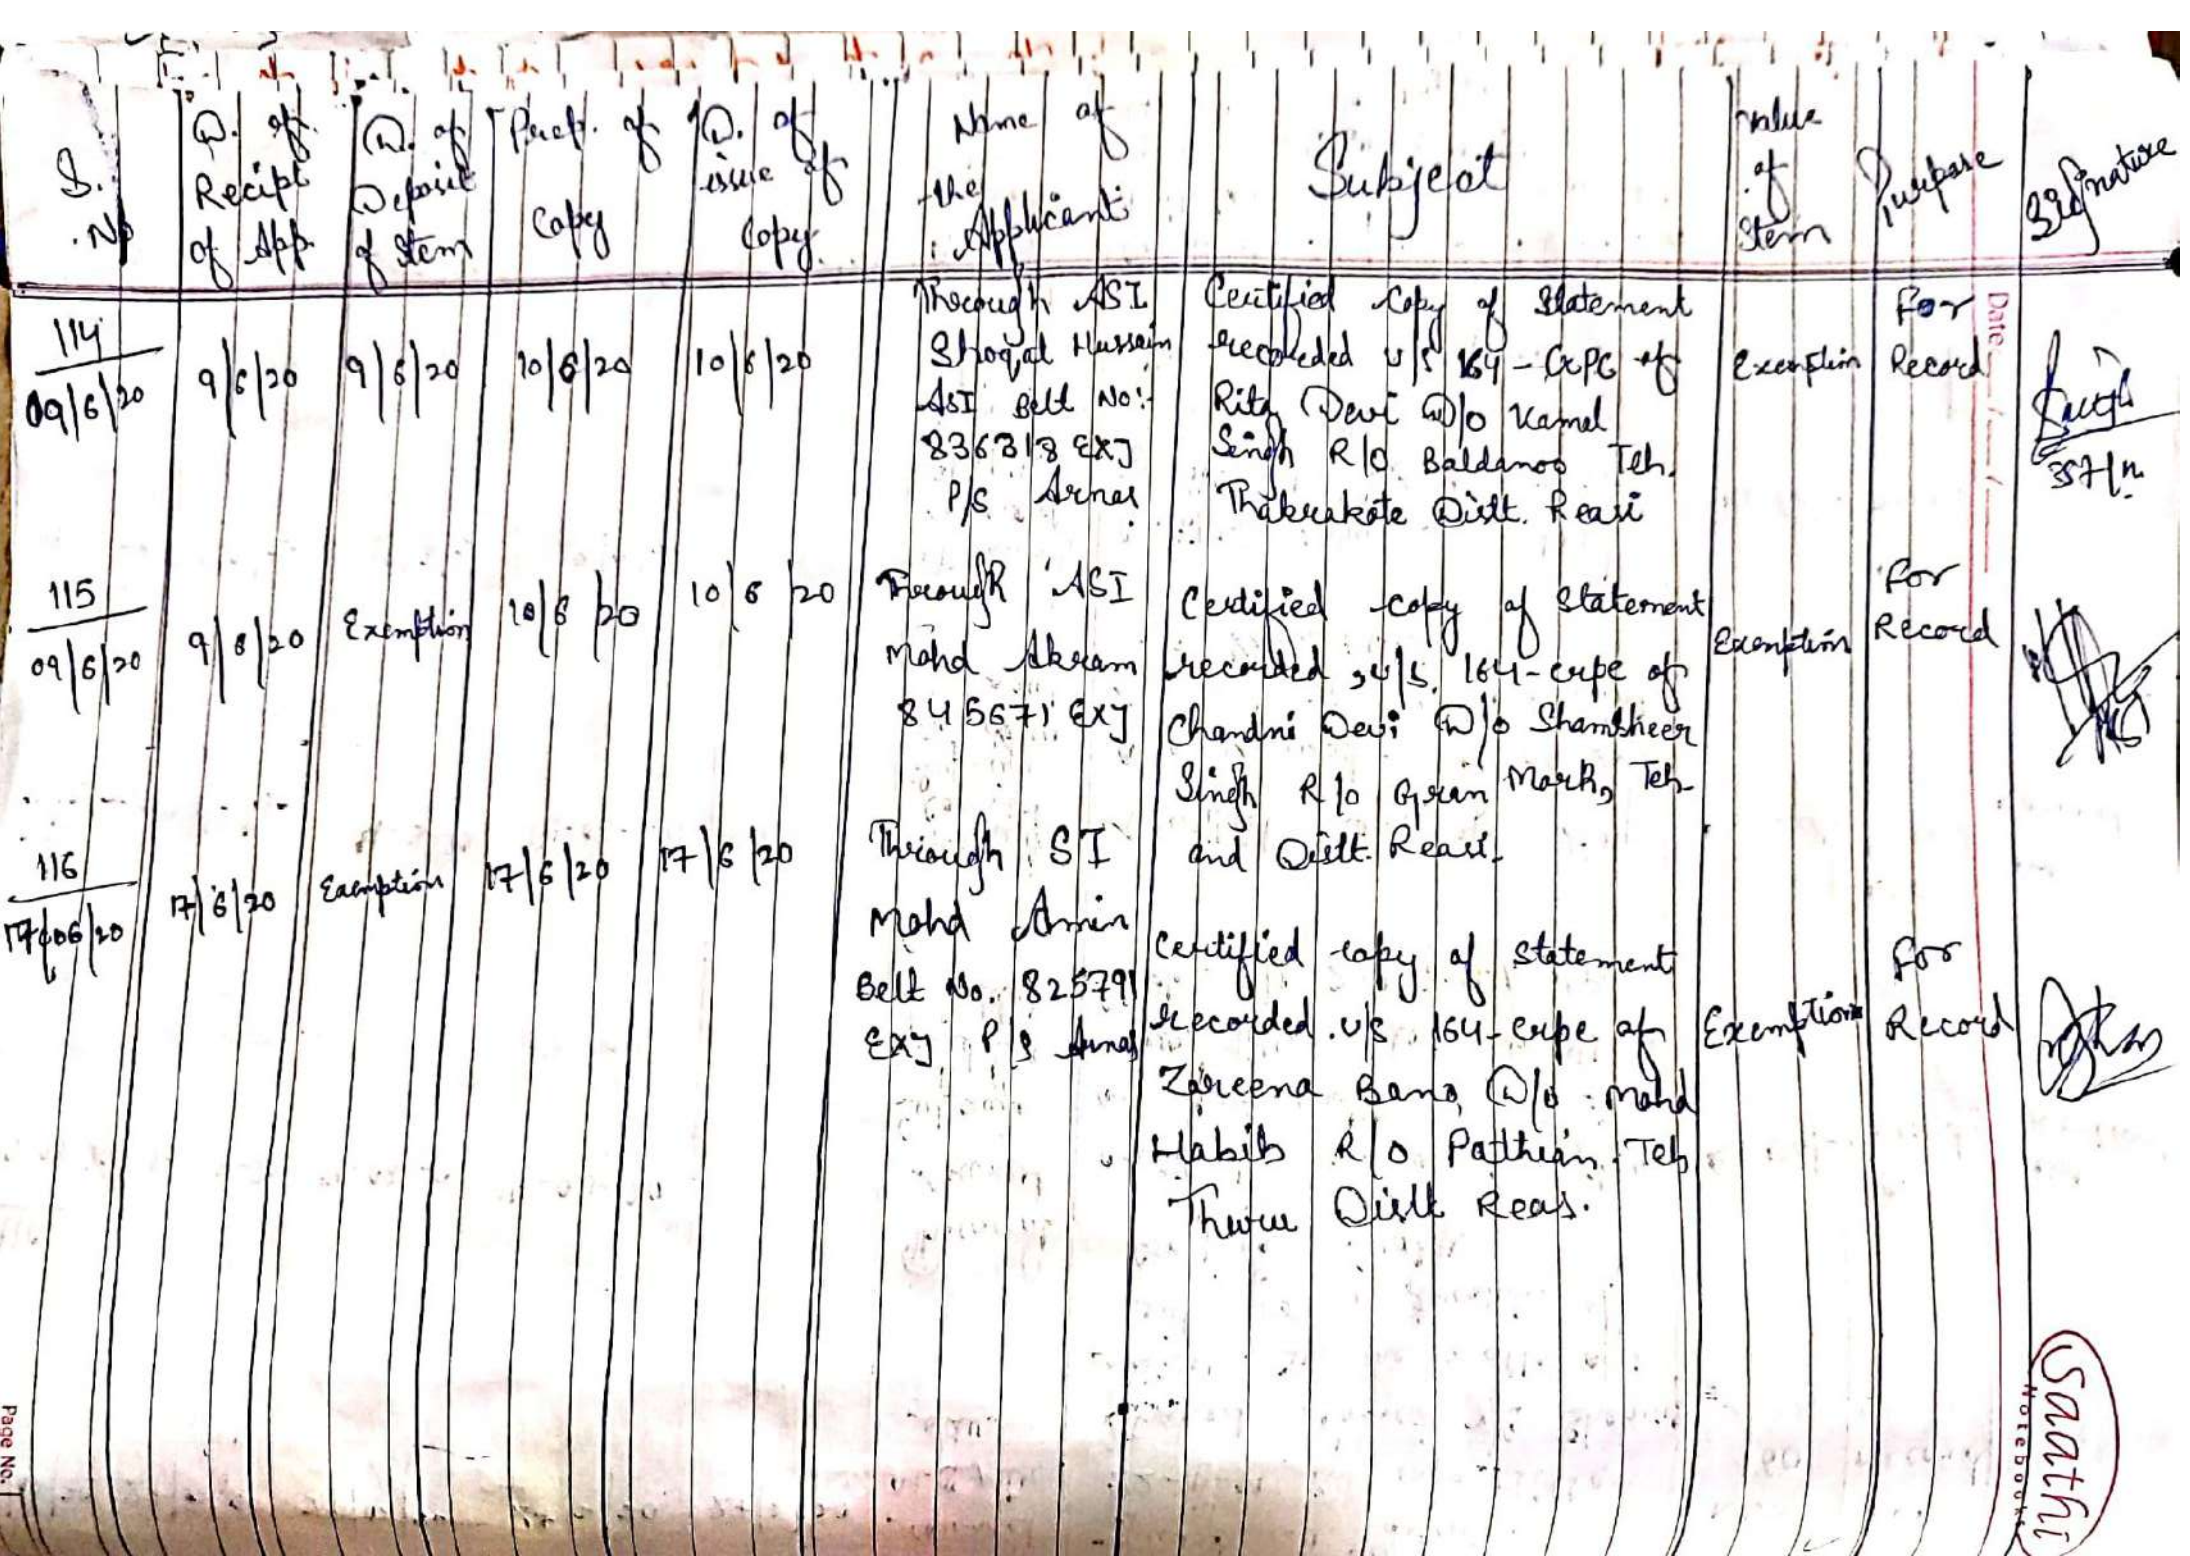 S. No
D. of Recipt of App.
D. of Deposit of Stem
Prep. of Copy
D. of issue of Copy.
Name of the Applicant
Subject
Value of Stem
Purpose
Signature
114
09/6/20
9/6/20
9/6/20
10/6/20
10/6/20
Through ASI
Shoqat Hussain
ASI Belt No:-
836318 EXJ
P/S Arnas
Certified Copy of Statement
recorded u/s 164-CrPC of
Rita Devi D/o Kamal
Singh R/o Baldanoo Teh.
Thakrakote Distt. Reasi
Exemption
For
Record
357/n.
115
09/6/20
9/6/20
Exemption
10/6/20
10/6/20
Through ASI
Mohd Akram
845671 EXJ
Certified copy of statement
recorded u/s. 164-crpc of
Chandni Devi D/o Shamsheer
Singh R/o Gran Mark, Teh-
and Distt. Reasi-
Exemption
For
Record
116
17/06/20
17/6/20
Exemption
17/6/20
17/6/20
Through SI
Mohd Amin
Belt No. 825791
EXJ P/S Arnas
Certified copy of statement
recorded u/s 164-crpc of
Zareena Bano D/o Mohd
Habib R/o Pathian Teh
Thuru Distt Reas.
Exemption
For
Record
Date
Page No.
Saathi
Notebooks